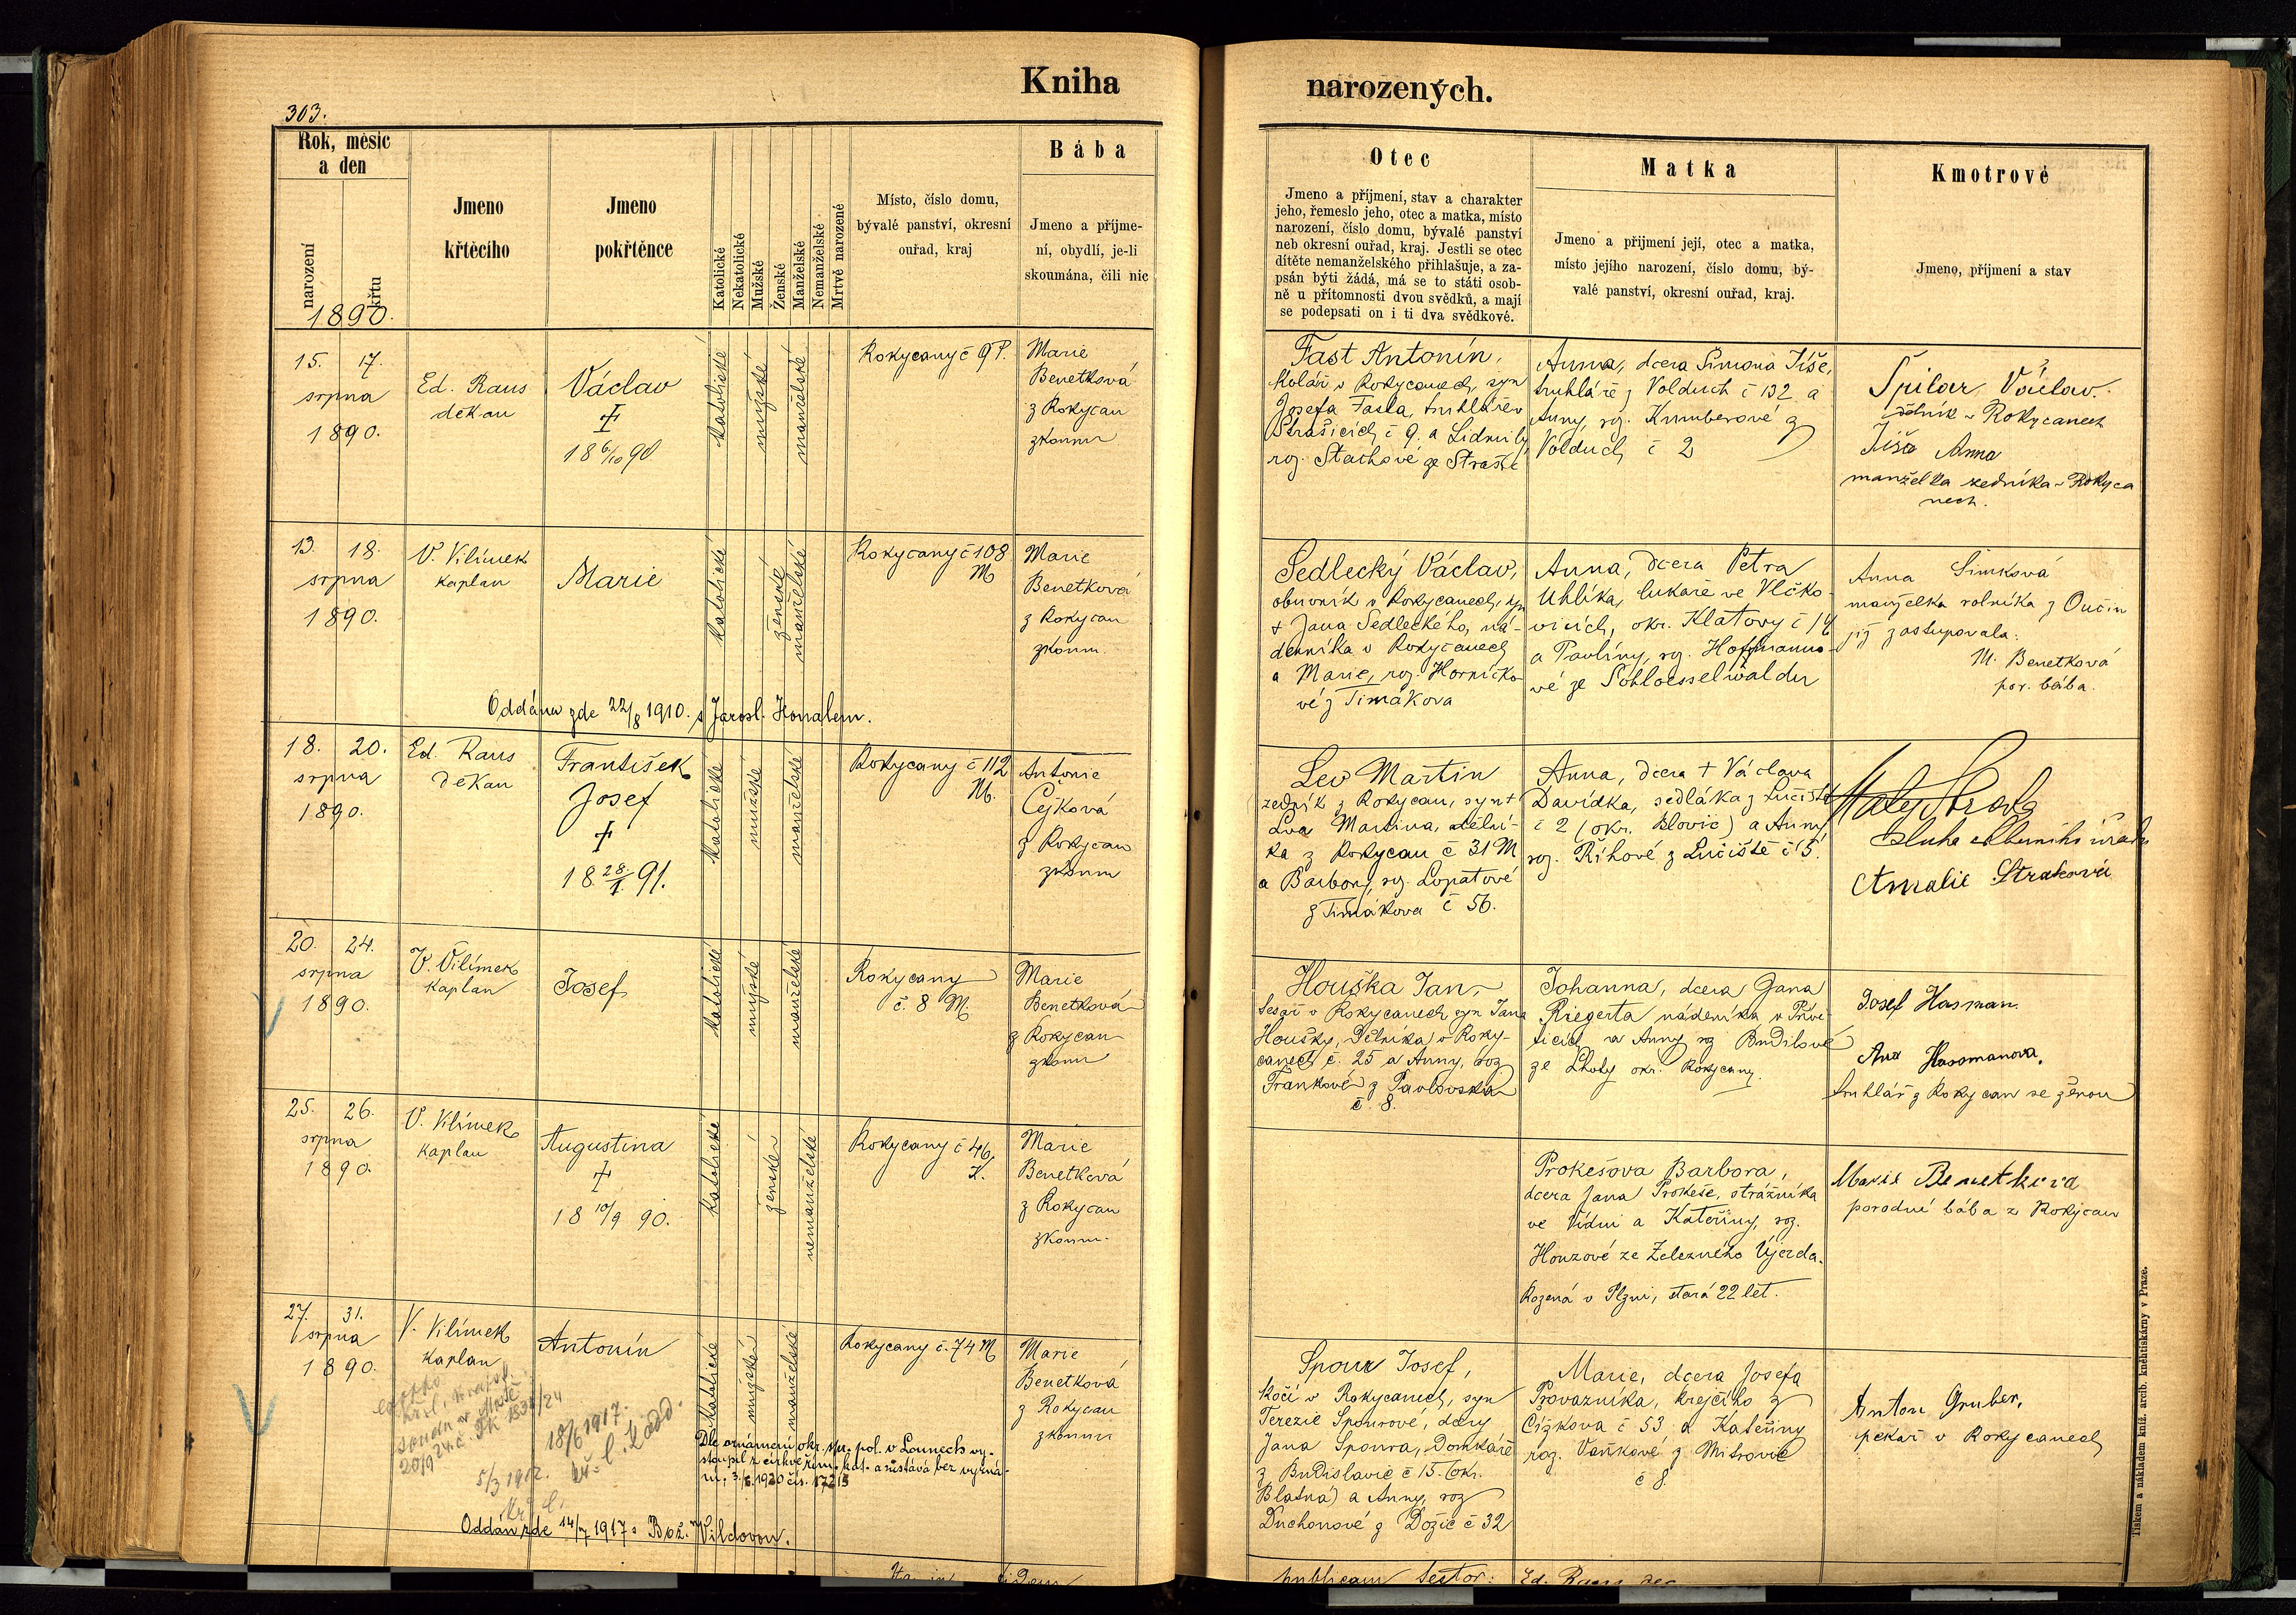 Kniha
narozených.
303.
Rok, měsíc
a den
narození
křtu
1890.
Jmeno
křtěcího
Jmeno
pokřtěnce
Katolické
Nekatolické
Mužské
Ženské
Manželské
Nemanželské
Mrtvě narozené
Místo, číslo domu,
bývalé panství, okresní
ouřad, kraj
Bába
Jmeno a příjme-
ní, obydlí, je-li
skoumána, čili nic
Otec
Jmeno a příjmení, stav a charakter
jeho, řemeslo jeho, otec a matka, místo
narození, číslo domu, bývalé panství
neb okresní ouřad, kraj. Jestli se otec
dítěte nemanželského přihlašuje, a za-
psán býti žádá, má se to státi osob-
ně u přítomnosti dvou svědků, a mají
se podepsati on i ti dva svědkové.
Matka
Jmeno a přijmení její, otec a matka,
místo jejího narození, číslo domu, bý-
valé panství, okresní ouřad, kraj.
Kmotrové
Jmeno, příjmení a stav
15. 17.
srpna
1890.
Ed. Raus
děkan
Václav
+
18 6/10 90
katolické
mužské
manželské
Rokycany č 9 P.
Marie
Benetková
z Rokycan
zkoum
Fast Antonín,
kolář v Rokycanech, syn
Josefa Fasta, truhláře v
Strašicích č 9. a Lidmily,
roz. Stachové ze Strašic
Anna, dcera Šimona Tíše,
truhláře z Volduch č 132 a
Anny, roz. Krumberové z
Volduch č 2
Špilar Václav.
v Rokycanech
Anna
manželka zedníka v Rokyca
nech.
13. 18.
srpna
1890.
V. Vilímek
kaplan
Marie
katolické
ženské
manželské
Rokycany č 108
M
Marie
Benetková
z Rokycan
zkoum.
Oddána zde 22/8 1910. s Jarosl. Honalem.
Sedlecký Václav,
obuvník v Rokycanech, syn
+ Jana Sedleckého, ná-
denníka v Rokycanech
a Marie, roz. Horničko-
vé z Timákova
Anna, dcera Petra
Uhlíka, lukaře ve Vlčko-
vicích, okr. Klatovy č 14
a Pavlíny, roz. Hoffmanno-
vé ze Schloesselwaldu
Anna Šimková
manželka rolníka z Oučin
již zastupovala:
M. Benetková
por. bába.
18. 20.
srpna
1890.
Ed. Raus
děkan
František
Josef
+
18 28/1. 91.
katolické
mužské
manželské
Rokycany č 112
M.
Antonie
Cejková
z Rokycan
zkoum
Lev Martin
zedník z Rokycan, syn +
Lva Martina, dělní-
ka z Rokycan č 31 M
a Barbory, roz. Lopatové
z Timákova č 56.
Anna, dcera + Václava
Davídka, sedláka z Lučiště
č 2 (okr. Blovic) a Anny
roz. Říhové z Lučiště č 5.
sluha
Amalie Straková
20. 24.
srpna
1890.
V. Vilímek
kaplan
Josef
katolické
mužské
manželské
Rokycany
č. 8 M.
Marie
Benetková
z Rokycan
zkoum
Houška Jan,
tesař v Rokycanech syn Jana
Houšky, dělníka v Roky-
canech č. 25 a Anny, roz
Frankové z Pavlovska
č. 8.
Johanna, dcera Jana
Riegerta nádeníka v Přive-
ticích a Anny roz Budilové
ze Lhoty okr. Rokycany.
Josef Hasman.
Ana Hassmanova,
truhlář z Rokycan se ženou
25. 26.
srpna
1890.
V. Vilímek
kaplan
Augustina
+
18 10/9 90.
katolické
ženské
nemanželské
Rokycany č 46
Marie
Benetková
z Rokycan
zkoum.
Prokešova Barbora,
dcera Jana Prokeše, strážníka
ve Vídni a Kateřiny, roz.
Houzové ze Železného Újezda.
Rozená v Plzni, stará 22 let.
Marie Benetková
porodní bába z Rokycan
27. 31.
srpna
1890.
V. Vilímek
kaplan
Antonín
katolické
mužské
manželské
Rokycany č. 74 M
Marie
Benetková
z Rokycan
zkoum
18/6 1917.
5/3 1912.
Dle oznámení okr. spr. pol. v Lounech vy-
stoupil z církve řím. kat. a zůstává bez vyzná-
ní, 3./6. 1920 čís. 17213
Oddán zde 14/7 1917 s Bož. Vildovou.
Spour Josef,
kočí v Rokycanech, syn
Terezie Spourové, dcery
Jana Spoura, domkáře
z Budislavic č 15. (okr.
Blatná) a Anny, roz
Duchonové z Dožic č 32
Marie, dcera Josefa
Provazníka, krejčího z
Čížkova č 53 a Kateřiny
roz. Vaňkové z Mitrovic
č 8.
Anton Gruber,
pekař v Rokycanech
Ed. Raus
Tiskem a nákladem kníž. arcib. knihtiskárny v Praze.